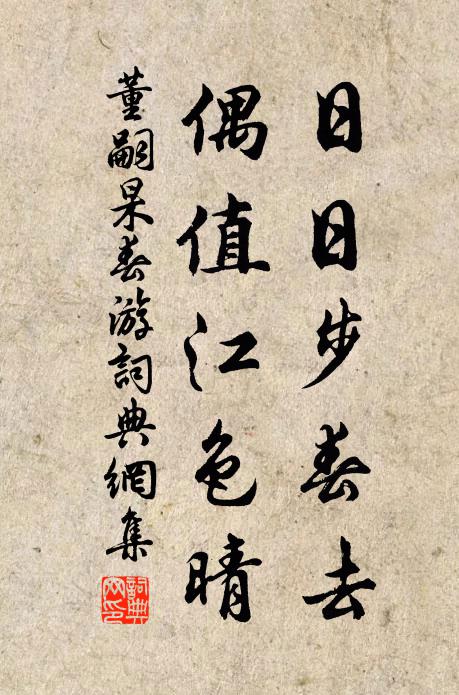 日日步春去
偶值江色晴
董嗣杲春游詞典網集
詞典网印